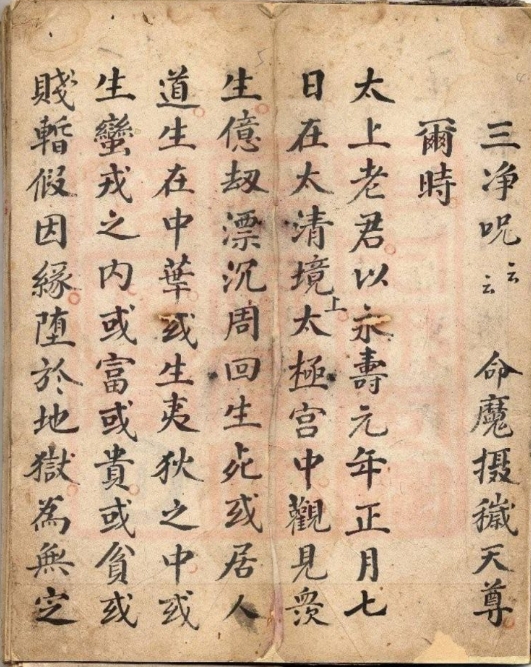 三净呪云云 命魔摄穢天尊
爾時
太上老君以永壽元年正月七
日在太清境上太極宫中觀見衆
生億劫漂沉周回生死或居人
道生在中華或生夷狄之中或
生蠻戎之内或富或貴或貧或
賤暫假因緣堕於地獄為無定